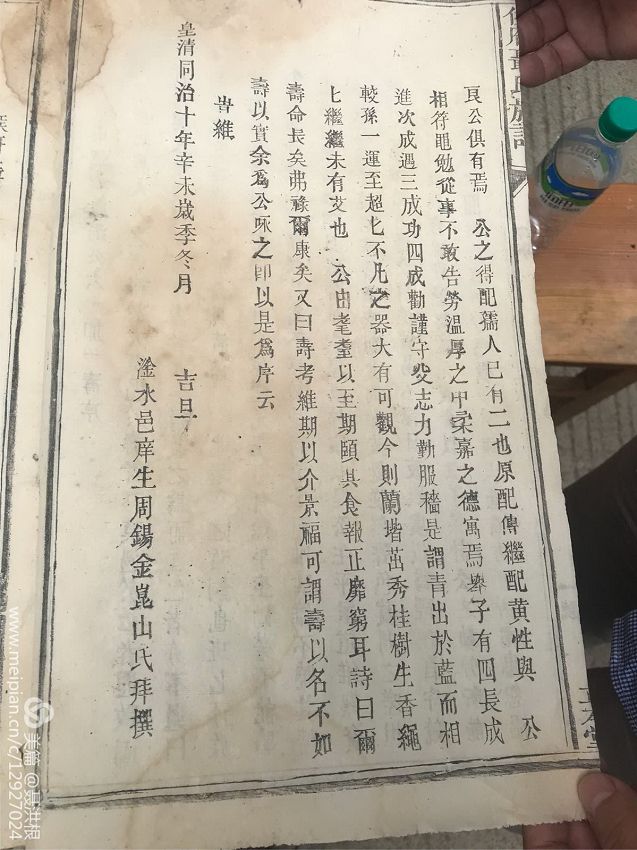 良公俱有焉 公之得配孺人已有二也原配傳繼配黄性與 公
相符黽勉從事不敢告勞溫厚之中柔嘉之德寓焉舉子有四長成
進次成遇三成功四成勸謹守父志力勤服穡是謂青出於藍而相
較孫一運至超匕不凡之器大有可觀今則蘭堦茁秀桂樹生香繩
匕繼繼未有艾也 公由耄耋以至期頤其食報正靡窮耳詩曰爾
壽命長矣弗祿爾康矣又曰壽考維期以介景福可謂壽以名不如
壽以實余為公咏之即以是為序云
旹維
皇清同治十年辛未歲季冬月 吉旦
淦水邑庠生周錫金崑山氏拜撰
氏族譜
www.meipian.cn/c/129927024
美篇@聂洪根